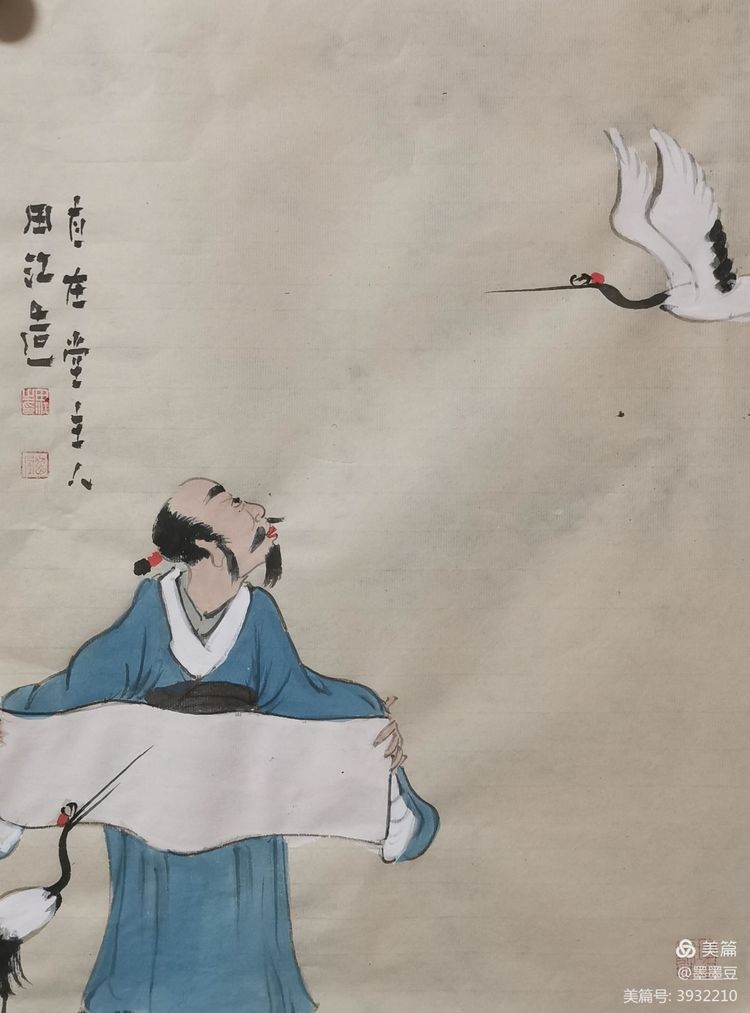 自在堂主人
田江造
美篇
@墨墨豆
美篇号: 3932210